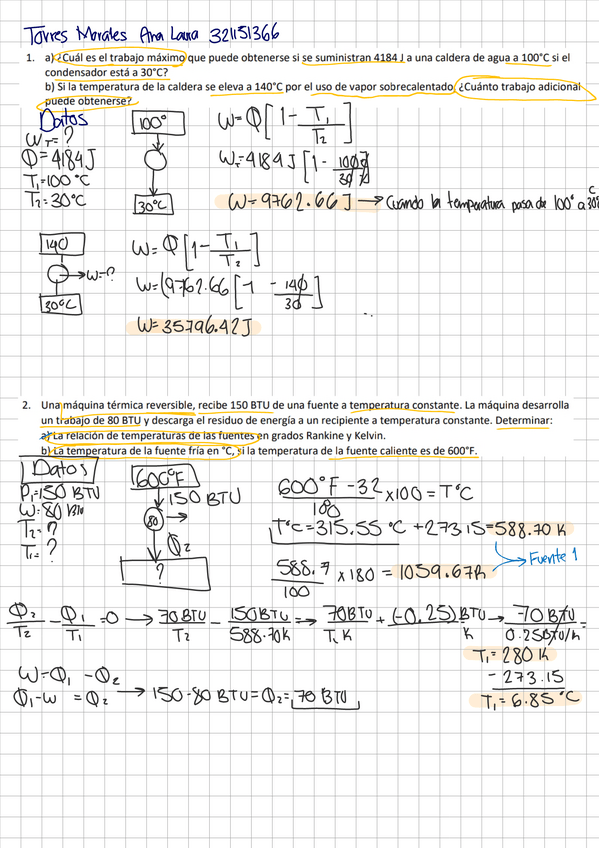 Torres Morales Ana Laura 321151366
1. a) ¿Cuál es el trabajo máximo que puede obtenerse si se suministran 4184 J a una caldera de agua a 100°C si el
condensador está a 30°C?
b) Si la temperatura de la caldera se eleva a 140°C por el uso de vapor sobrecalentado ¿Cuánto trabajo adicional
puede obtenerse?
Datos
WT= ?
Φ=4184J
T1=100°C
T2=30°C
100°
30°C
W=Φ[1-T1/T2]
W=4184J[1-100/30]
W=9762.66J → Cuando la temperatura pasa de 100° a 30°C
140
→W=?
30°C
W=Φ[1-T1/T2]
W=(9762.66[1-140/30]
W=35796.42J
2. Una máquina térmica reversible, recibe 150 BTU de una fuente a temperatura constante. La máquina desarrolla
un trabajo de 80 BTU y descarga el residuo de energía a un recipiente a temperatura constante. Determinar:
a) La relación de temperaturas de las fuentes en grados Rankine y Kelvin.
b) La temperatura de la fuente fría en °C, si la temperatura de la fuente caliente es de 600°F.
Datos
P1=150 BTU
W=80 BTU
T2=?
T1=?
600°F
150 BTU
80
Φ2
?
600°F-32/180 x100=T°C
T°C=315.55°C+273.15=588.70K
Fuente 1
588.7/100 x180=1059.67R
Φ2/T2-Φ1/T1=0→70BTU/T2-150BTU/588.70K=→70BTU/T1K+(-0.25)BTU/K→-70BTU/0.25BTU/K
T1=280K
-273.15
T1=6.85°C
W=Φ1-Φ2
Φ1-W=Φ2→150-80BTU=Φ2=70BTU